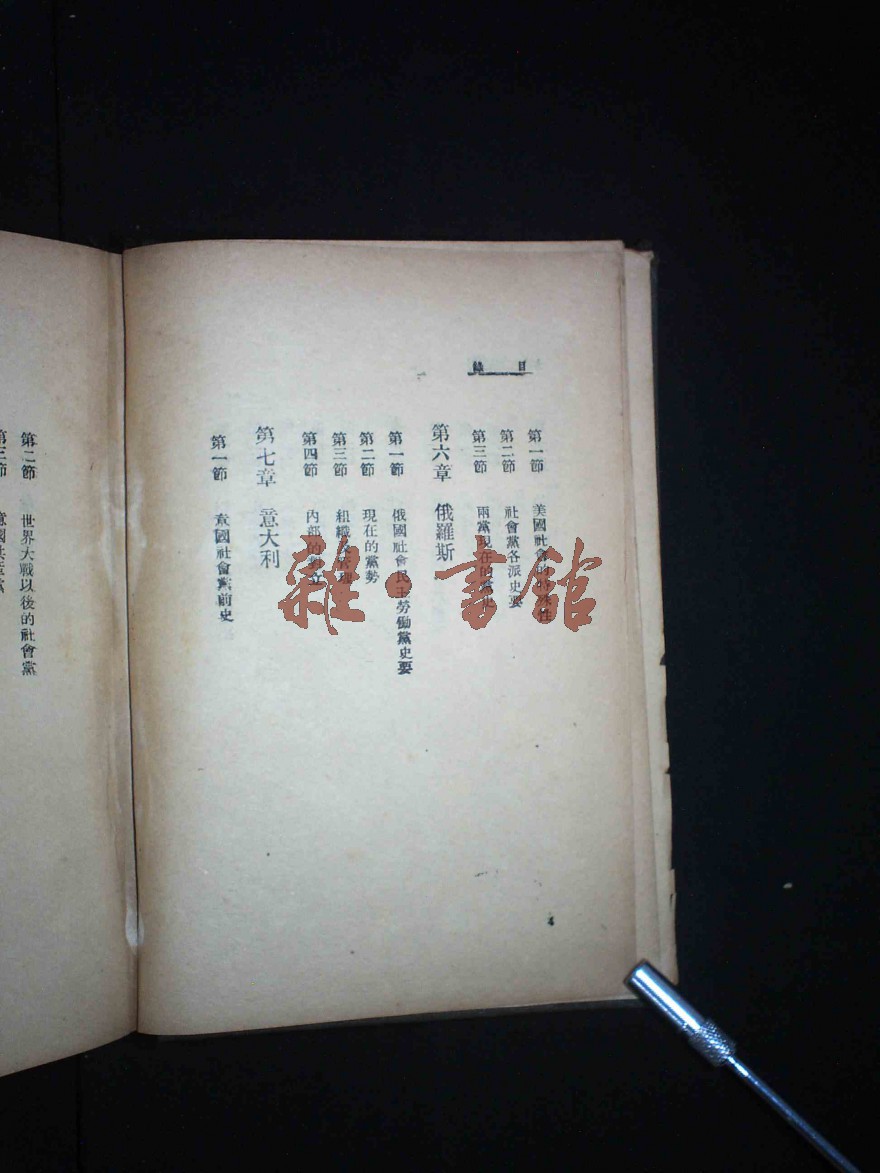 目錄
第一節 美國社會的特殊性
第二節 社會黨各派史要
第三節 兩黨現在的黨史
第六章 俄羅斯
第一節 俄國社會民主勞働黨史要
第二節 現在的黨勢
第三節 組織及管理
第四節 內部的對立
第七章 意大利
第一節 意國社會黨前史
4
第二節 世界大戰以後的社會黨
第三節 意國共產黨
雜·書館